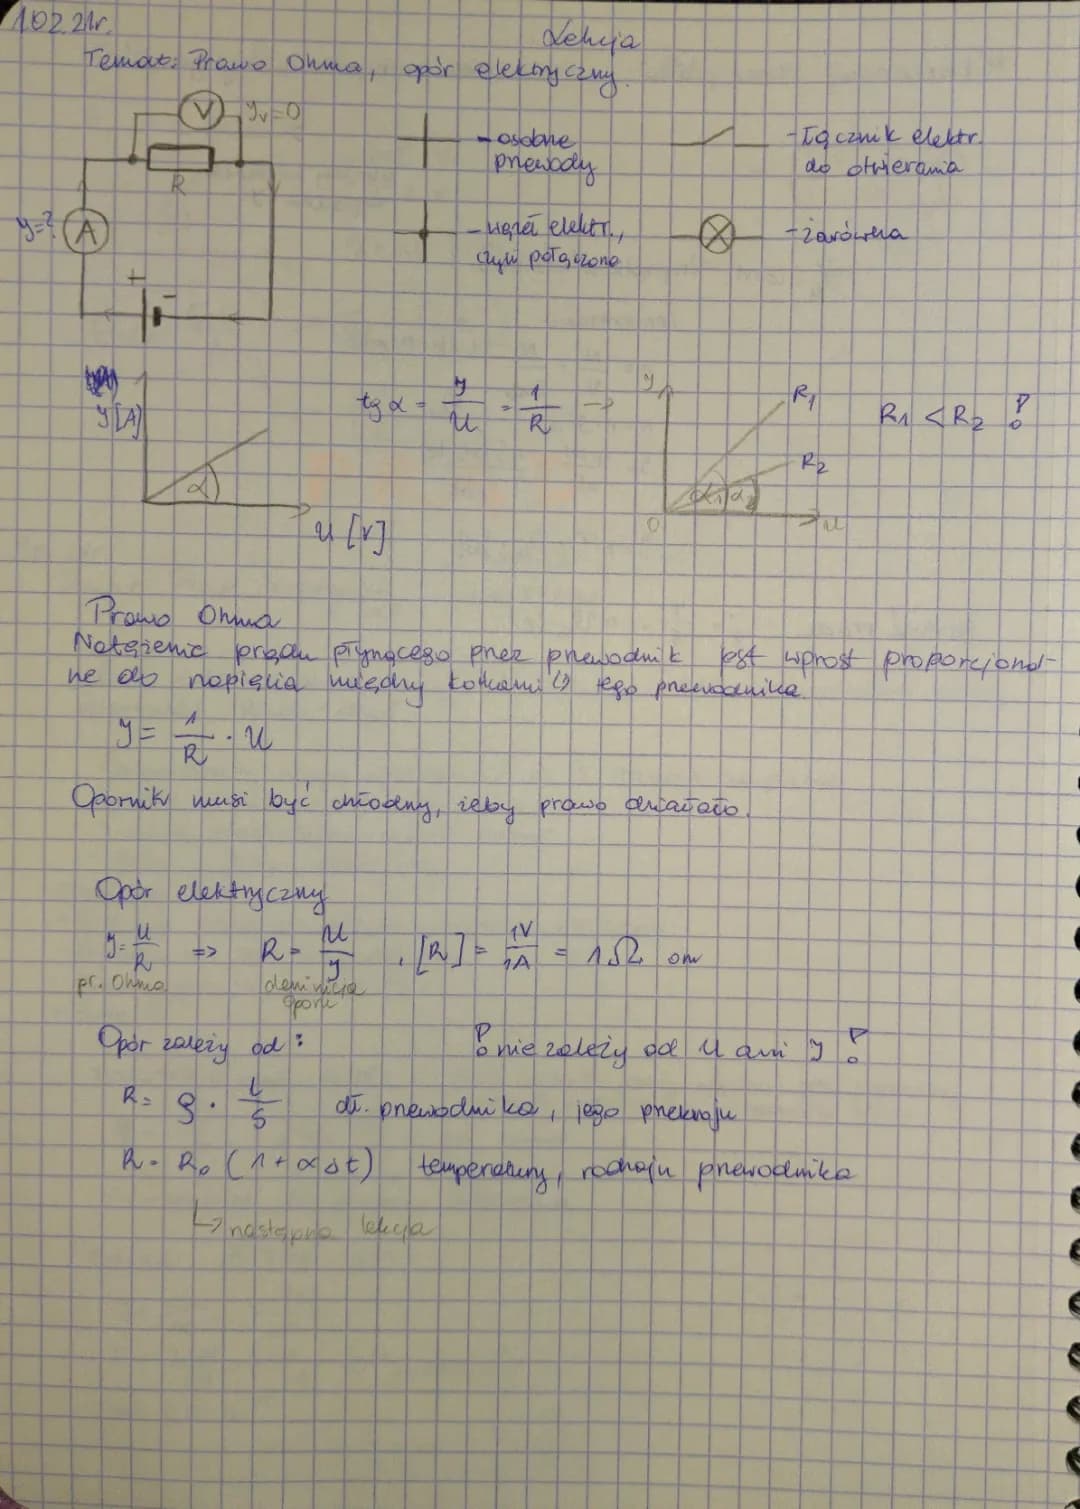 102.21r.
Lekcja
Temat: Prawo Ohma, opór elektryczny.
V
Iv=0
R
I=?
A
+
-
- osobne
przewody
- węzeł elektr.,
czyli połączone
- łącznik elektr.
do otwierania
- żarówka
I [A]
α
U [V]
tg α = I/U = 1/R →
I
R1
R2
α1
α2
0
U
R1 < R2 !
Prawo Ohma
Natężenie prądu płynącego przez przewodnik jest wprost proporcjonal-
ne do napięcia między końcami tego przewodnika.
I = 1/R · U
Opornik musi być chłodny, żeby prawo działało.
Opór elektryczny
I = U/R => R = U/I , [R] = 1V/1A = 1Ω om
pr. Ohma
deminicja
oporu
Opór zależy od:
! nie zależy od U ani I !
R = ρ · l/S dł. przewodnika, jego przekroju
R = R0 (1 + α Δt) temperatury, rodzaju przewodnika
↳ następna lekcja